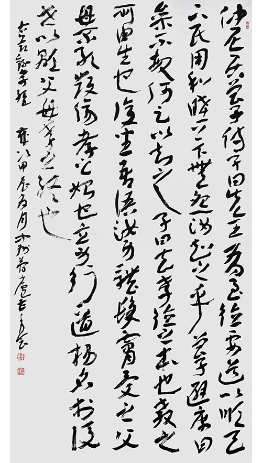 仲尼居曾子侍子曰先王有至德要道以順天
下民用和睦上下無怨汝知之乎曾子避席曰
參不敏何以知之子曰夫孝德之本也教之
所由生也復坐吾語汝身體髮膚受之父
母不敢毀傷孝之始也立身行道揚名於後
世以顯父母孝之終也
孝經 甲辰 月